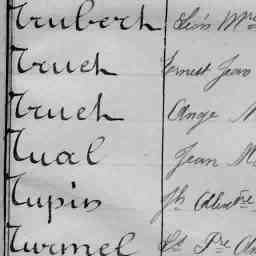 Trubert Eléo Mre
Truch Ernest Jean
Truch Ange
Tual Jean M
Tupin Jh
Turmel Pre